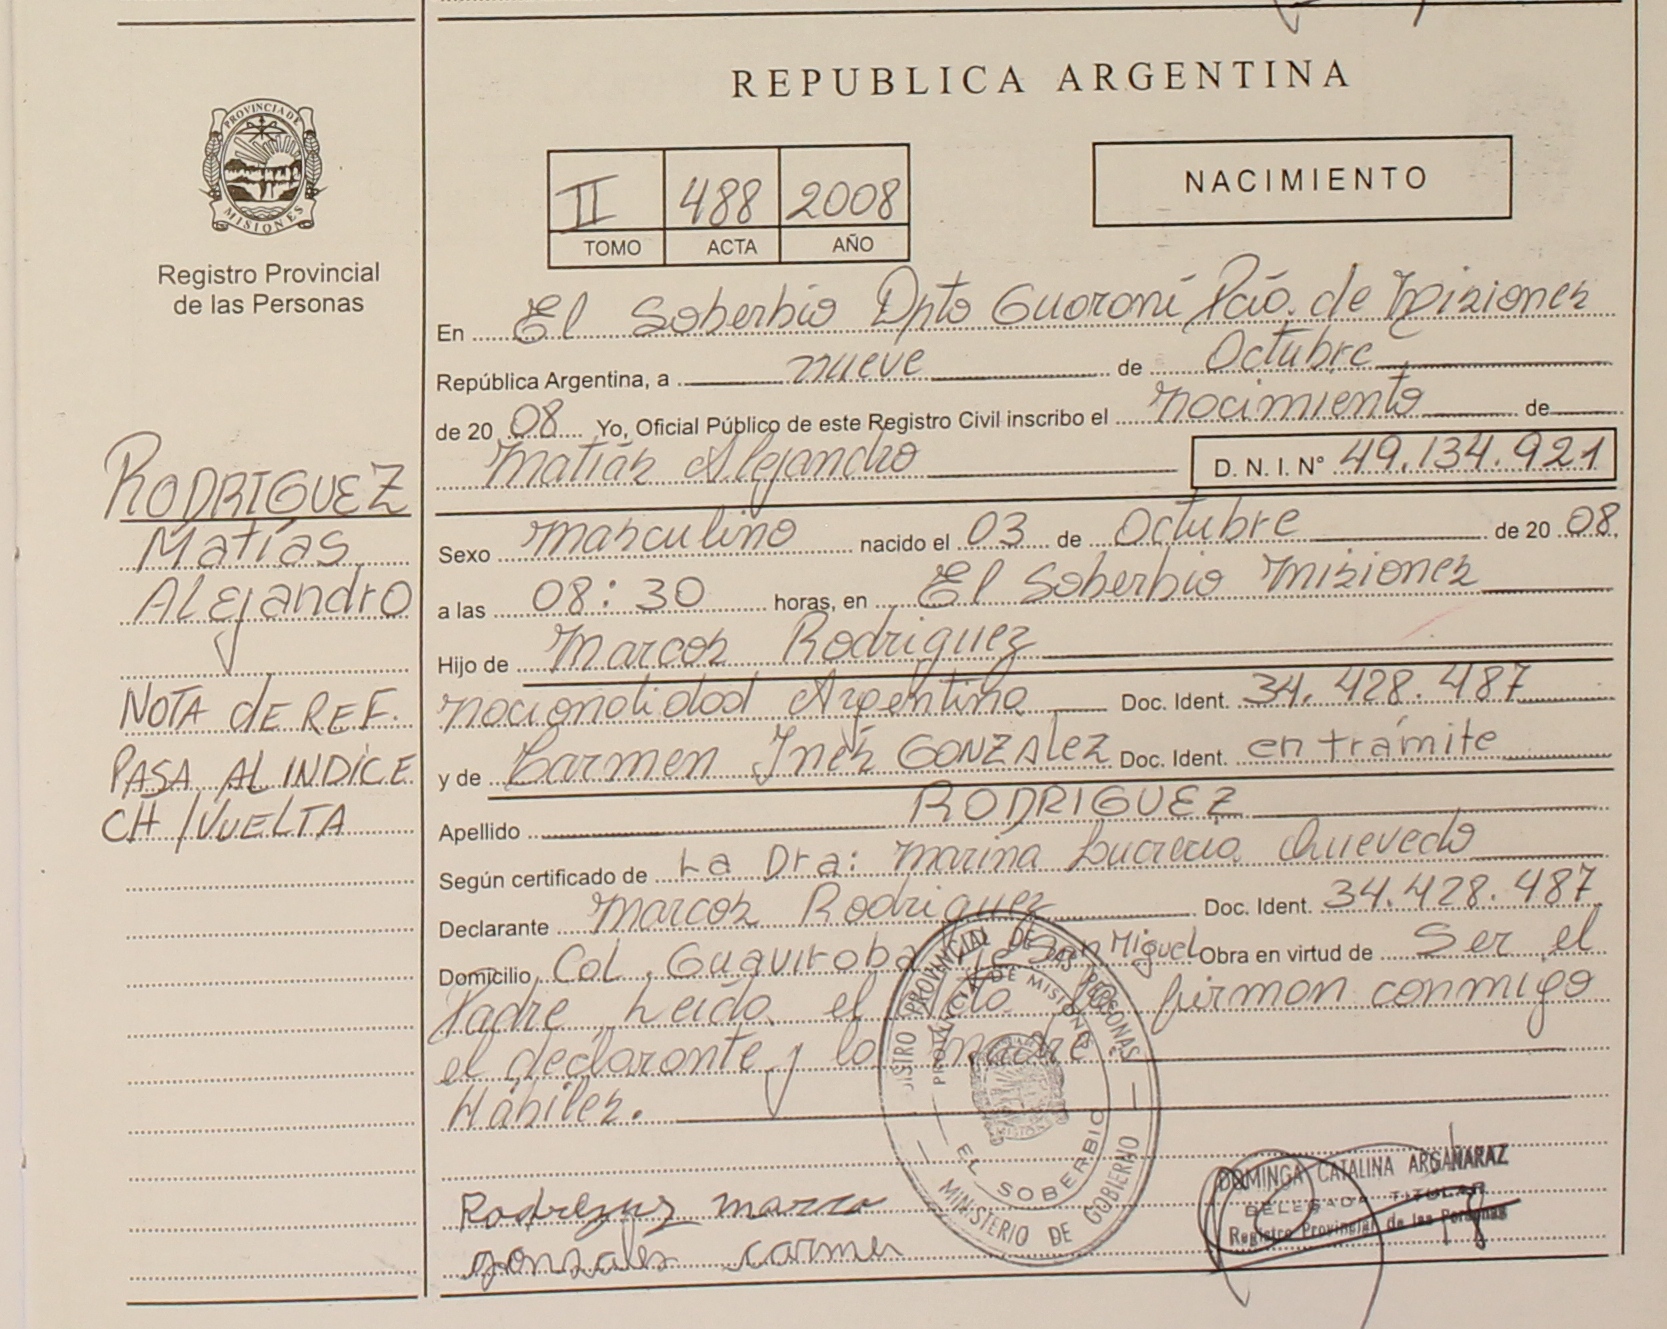 REPUBLICA ARGENTINA
PROVINCIA DE
MISIONES
Registro Provincial
de las Personas
II 488 2008
TOMO ACTA AÑO
NACIMIENTO
En El Soberbio Dpto Guaraní Pcia. de Misiones
República Argentina, a nueve de Octubre
de 20 08 Yo, Oficial Público de este Registro Civil inscribo el nacimiento de
Matías Alejandro D. N. I. N° 49.134.921
Sexo masculino nacido el 03 de Octubre de 20 08,
a las 08:30 horas, en El Soberbio Misiones
Hijo de Marcos Rodriguez
nacionalidad Argentina Doc. Ident. 34.428.487
y de Carmen Inés GONZALEZ Doc. Ident. en trámite
Apellido RODRIGUEZ
Según certificado de La Dra: Marina Lucrecia Quevedo
Declarante Marcos Rodriguez Doc. Ident. 34.428.487
Domicilio Col. Guaviroba San Miguel Obra en virtud de Ser el
Padre Leída el Acta la firman conmigo
el declarante y la madre.
Hábiles.
RODRIGUEZ
Matías
Alejandro
NOTA de REF.
PASA AL INDICE
CH/VUELTA
PROVINCIAL DE LAS PERSONAS
PROVINCIA DE MISIONES
EL SOBERBIO
MINISTERIO DE GOBIERNO
Rodriguz marco
gonzales carmen
DOMINGA CATALINA ARGAÑARAZ
DELEGADA TITULAR
Registro Provincial de las Personas